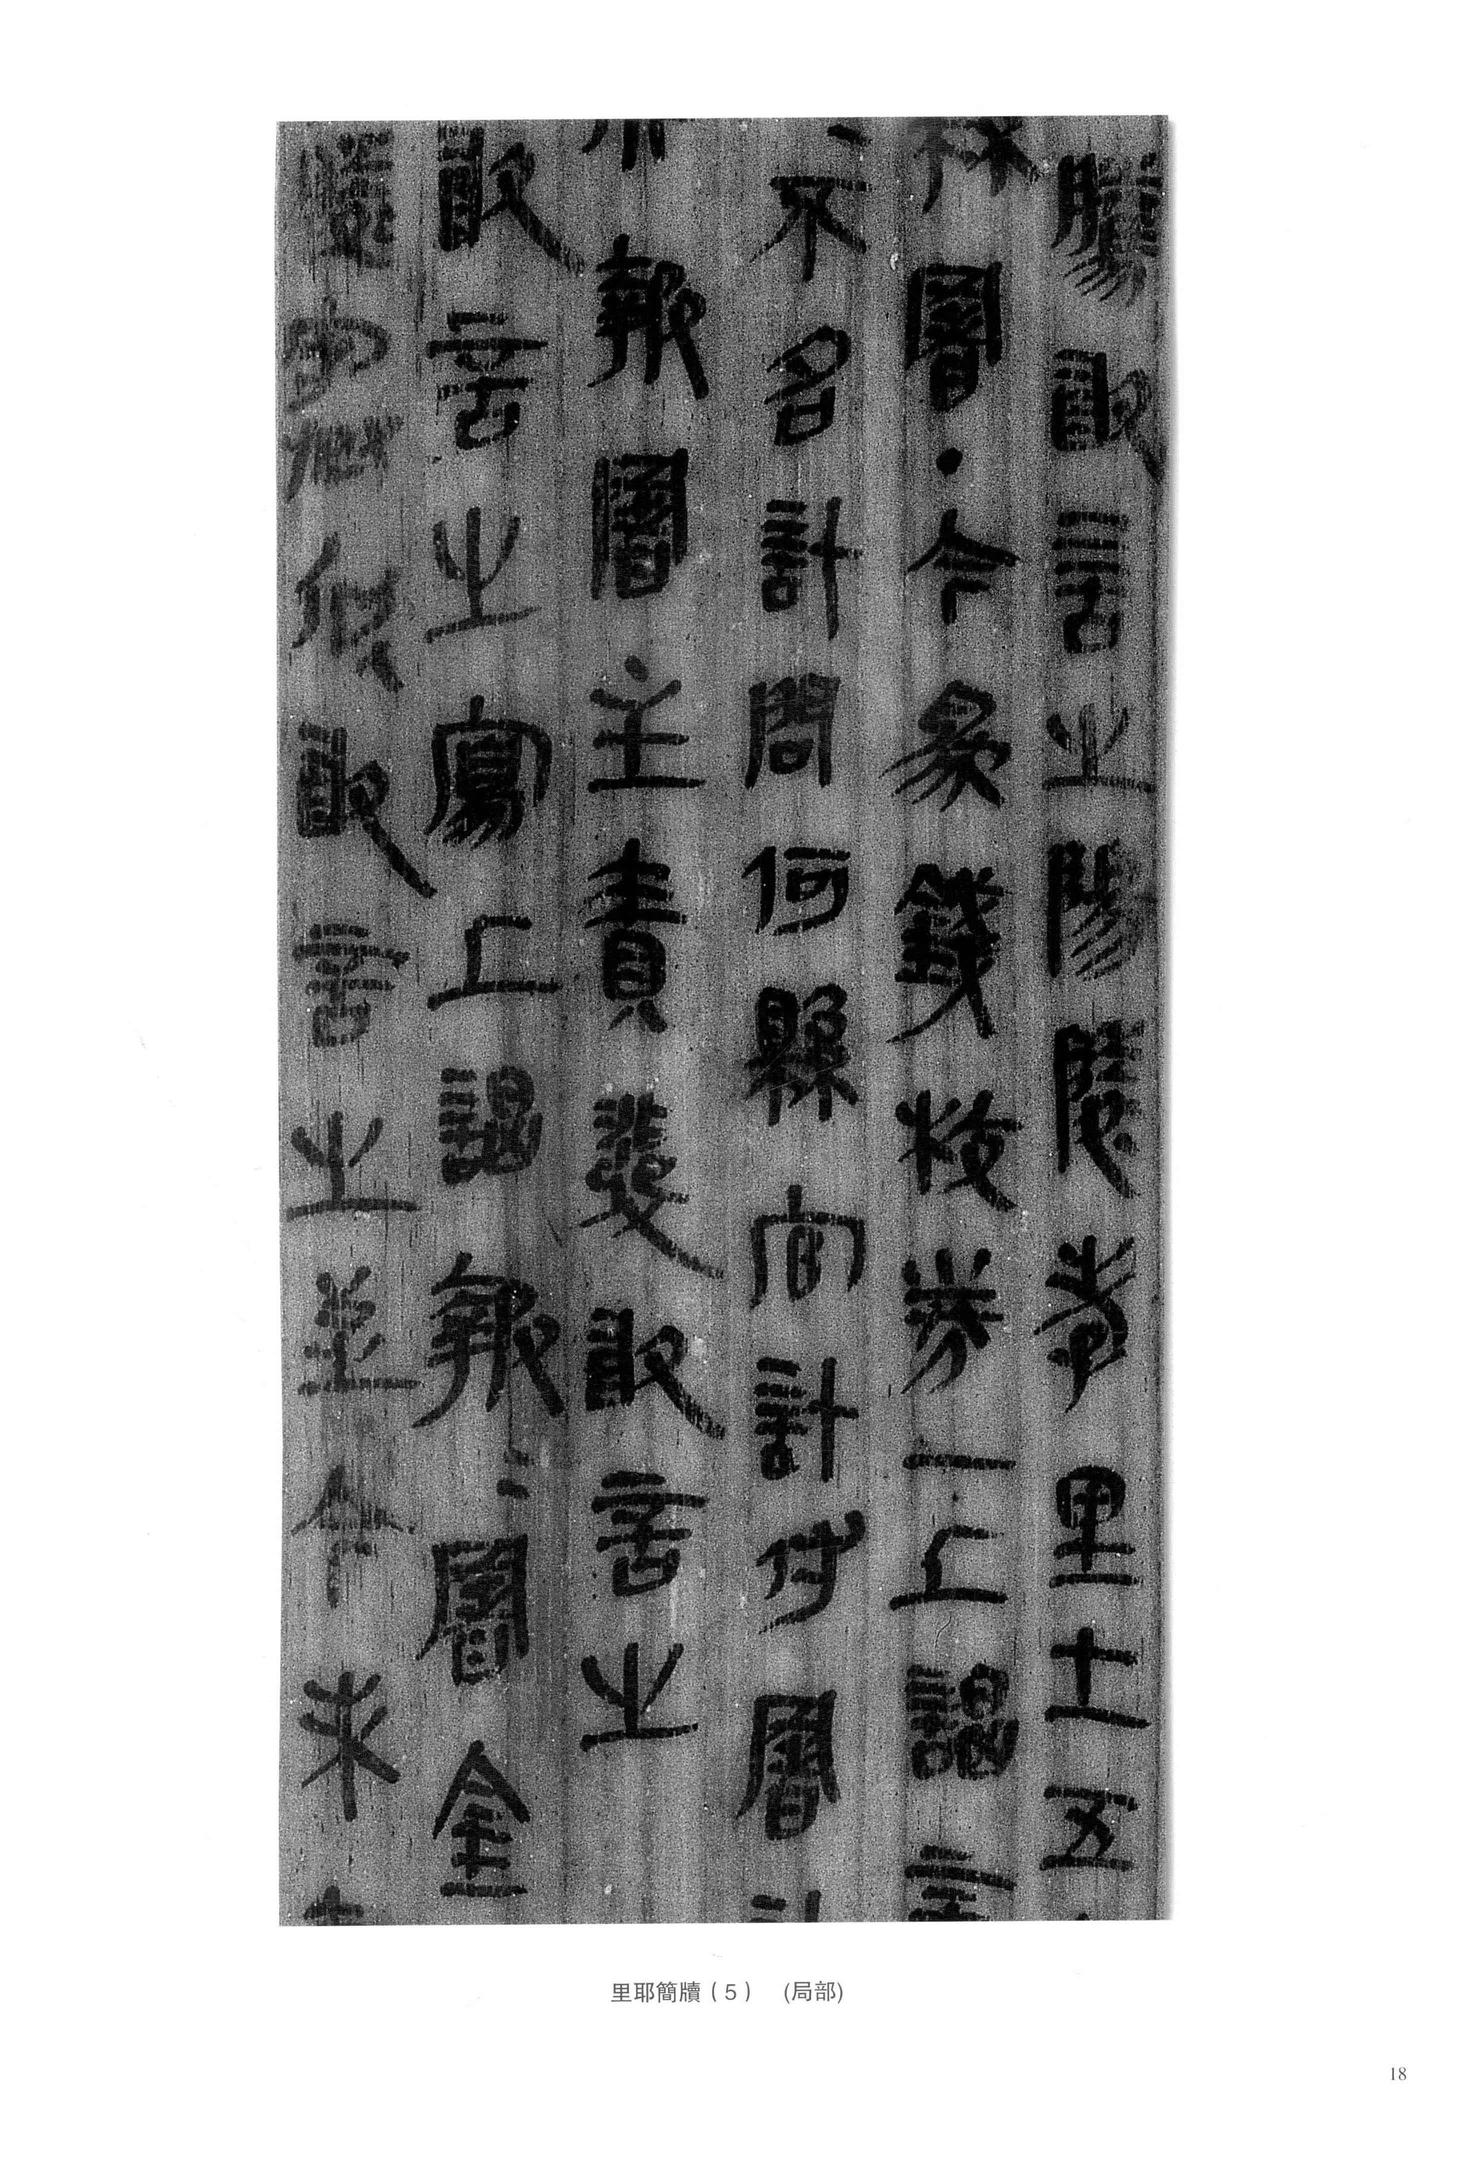 騰敢言之陽陵孝里士五
署·今為錢校券一上謁言
不名計問何縣官計付署計
報署主責發敢言之
敢言之寫上謁報=署金
敢言之至今未
里耶簡牘（5） (局部)
18